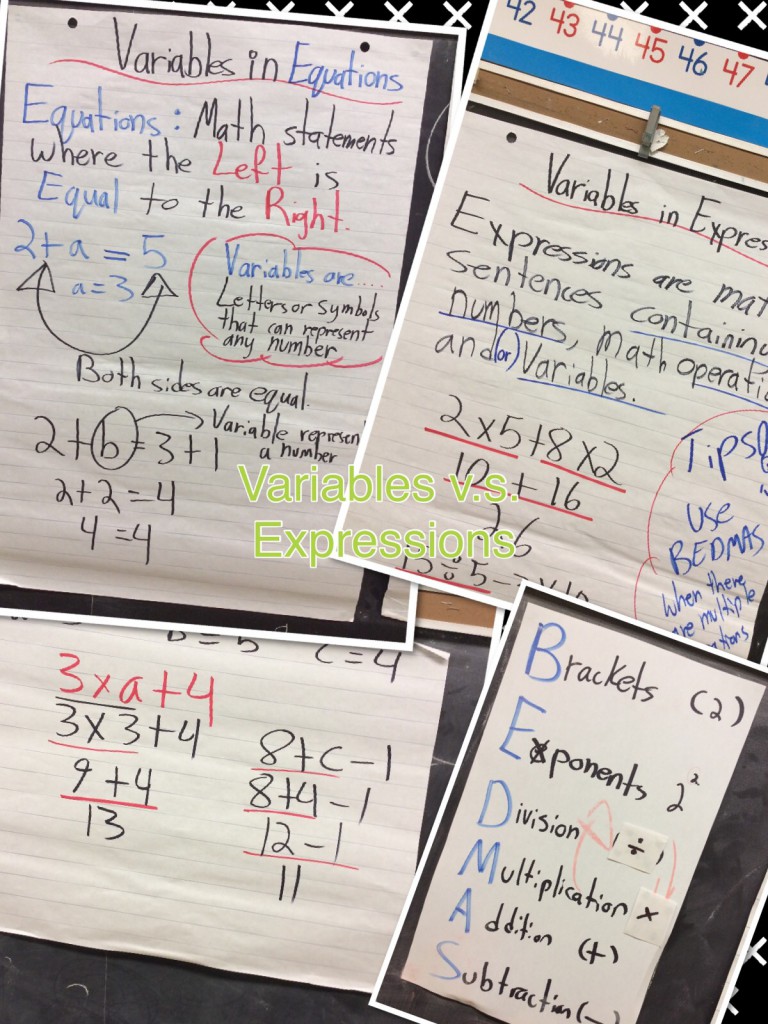 Variables in Equations
Equations: Math statements
where the Left is
Equal to the Right.
2+a = 5
a=3
Variables are....
Letters or symbols
that can represent
any number
Both sides are equal.
2+b=3+1
Variable represen
a number
2+2=4
4=4
42 43 44 45 46 47
Variables in Expres
Expressions are mat
sentences containing
numbers, math operati
and (or) Variables.
2x5+8x2
10 + 16
26
15÷5-
Tips
Use
BEDMAS
When there
are multiple
Variables v.s.
Expressions
b=5 c=4
3xa+4
3x3+4
9+4
13
8+c-1
8+4-1
12-1
11
Brackets (2)
Exponents 2²
Division (÷)
Multiplication x
Addition (+)
Subtraction (-)